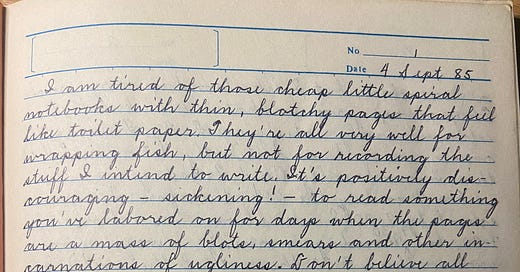 No 1
Date 4 Sept 85
I am tired of those cheap little spiral
notebooks with thin, blotchy pages that feel
like toilet paper. They're all very well for
wrapping fish, but not for recording the
stuff I intend to write. It's positively dis-
couraging – sickening! – to read something
you've labored on for days when the pages
are a mass of blots, smears and other in-
carnations of ugliness. Don't believe all